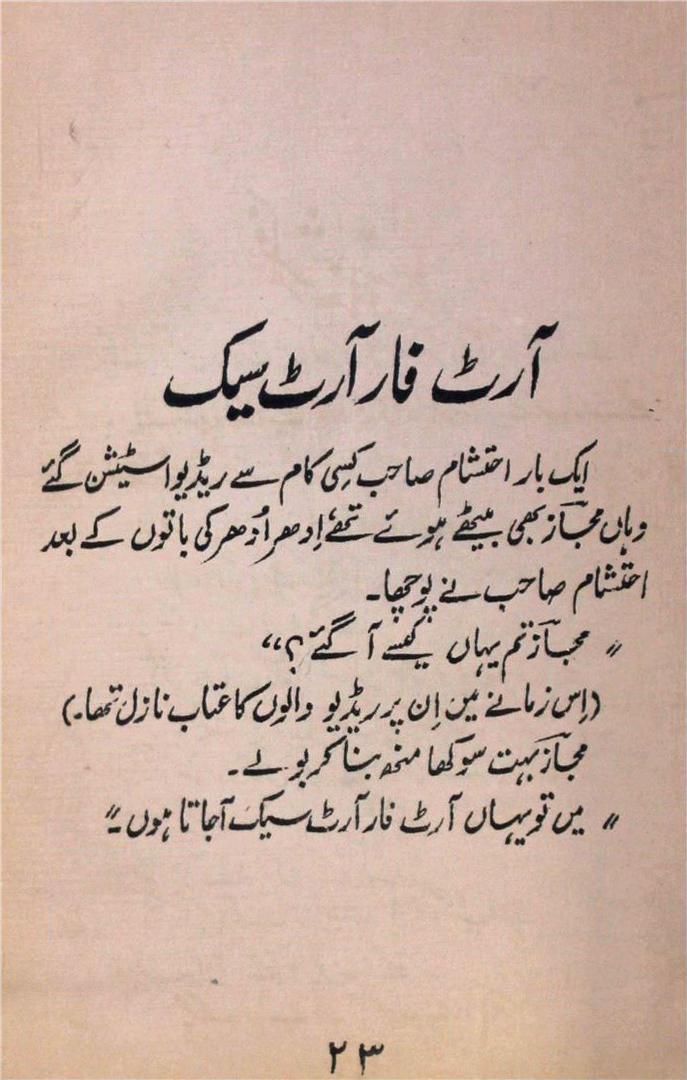 آرٹ فار آرٹ سیک
ایک بار احتشام صاحب کسی کام سے ریڈیو اسٹیشن گئے
وہاں مجازؔ بھی بیٹھے ہوئے تھے، اِدھر اُدھر کی باتوں کے بعد
احتشام صاحب نے پوچھا۔
"مجازؔ تم یہاں کیسے آ گئے؟"
(اِس زمانے میں اِن پر ریڈیو والوں کا عتاب نازل تھا۔)
مجازؔ بہت سوکھا منھ بنا کر بولے۔
"میں تو یہاں آرٹ فار آرٹ سیک آجاتا ہوں۔"
۲۳